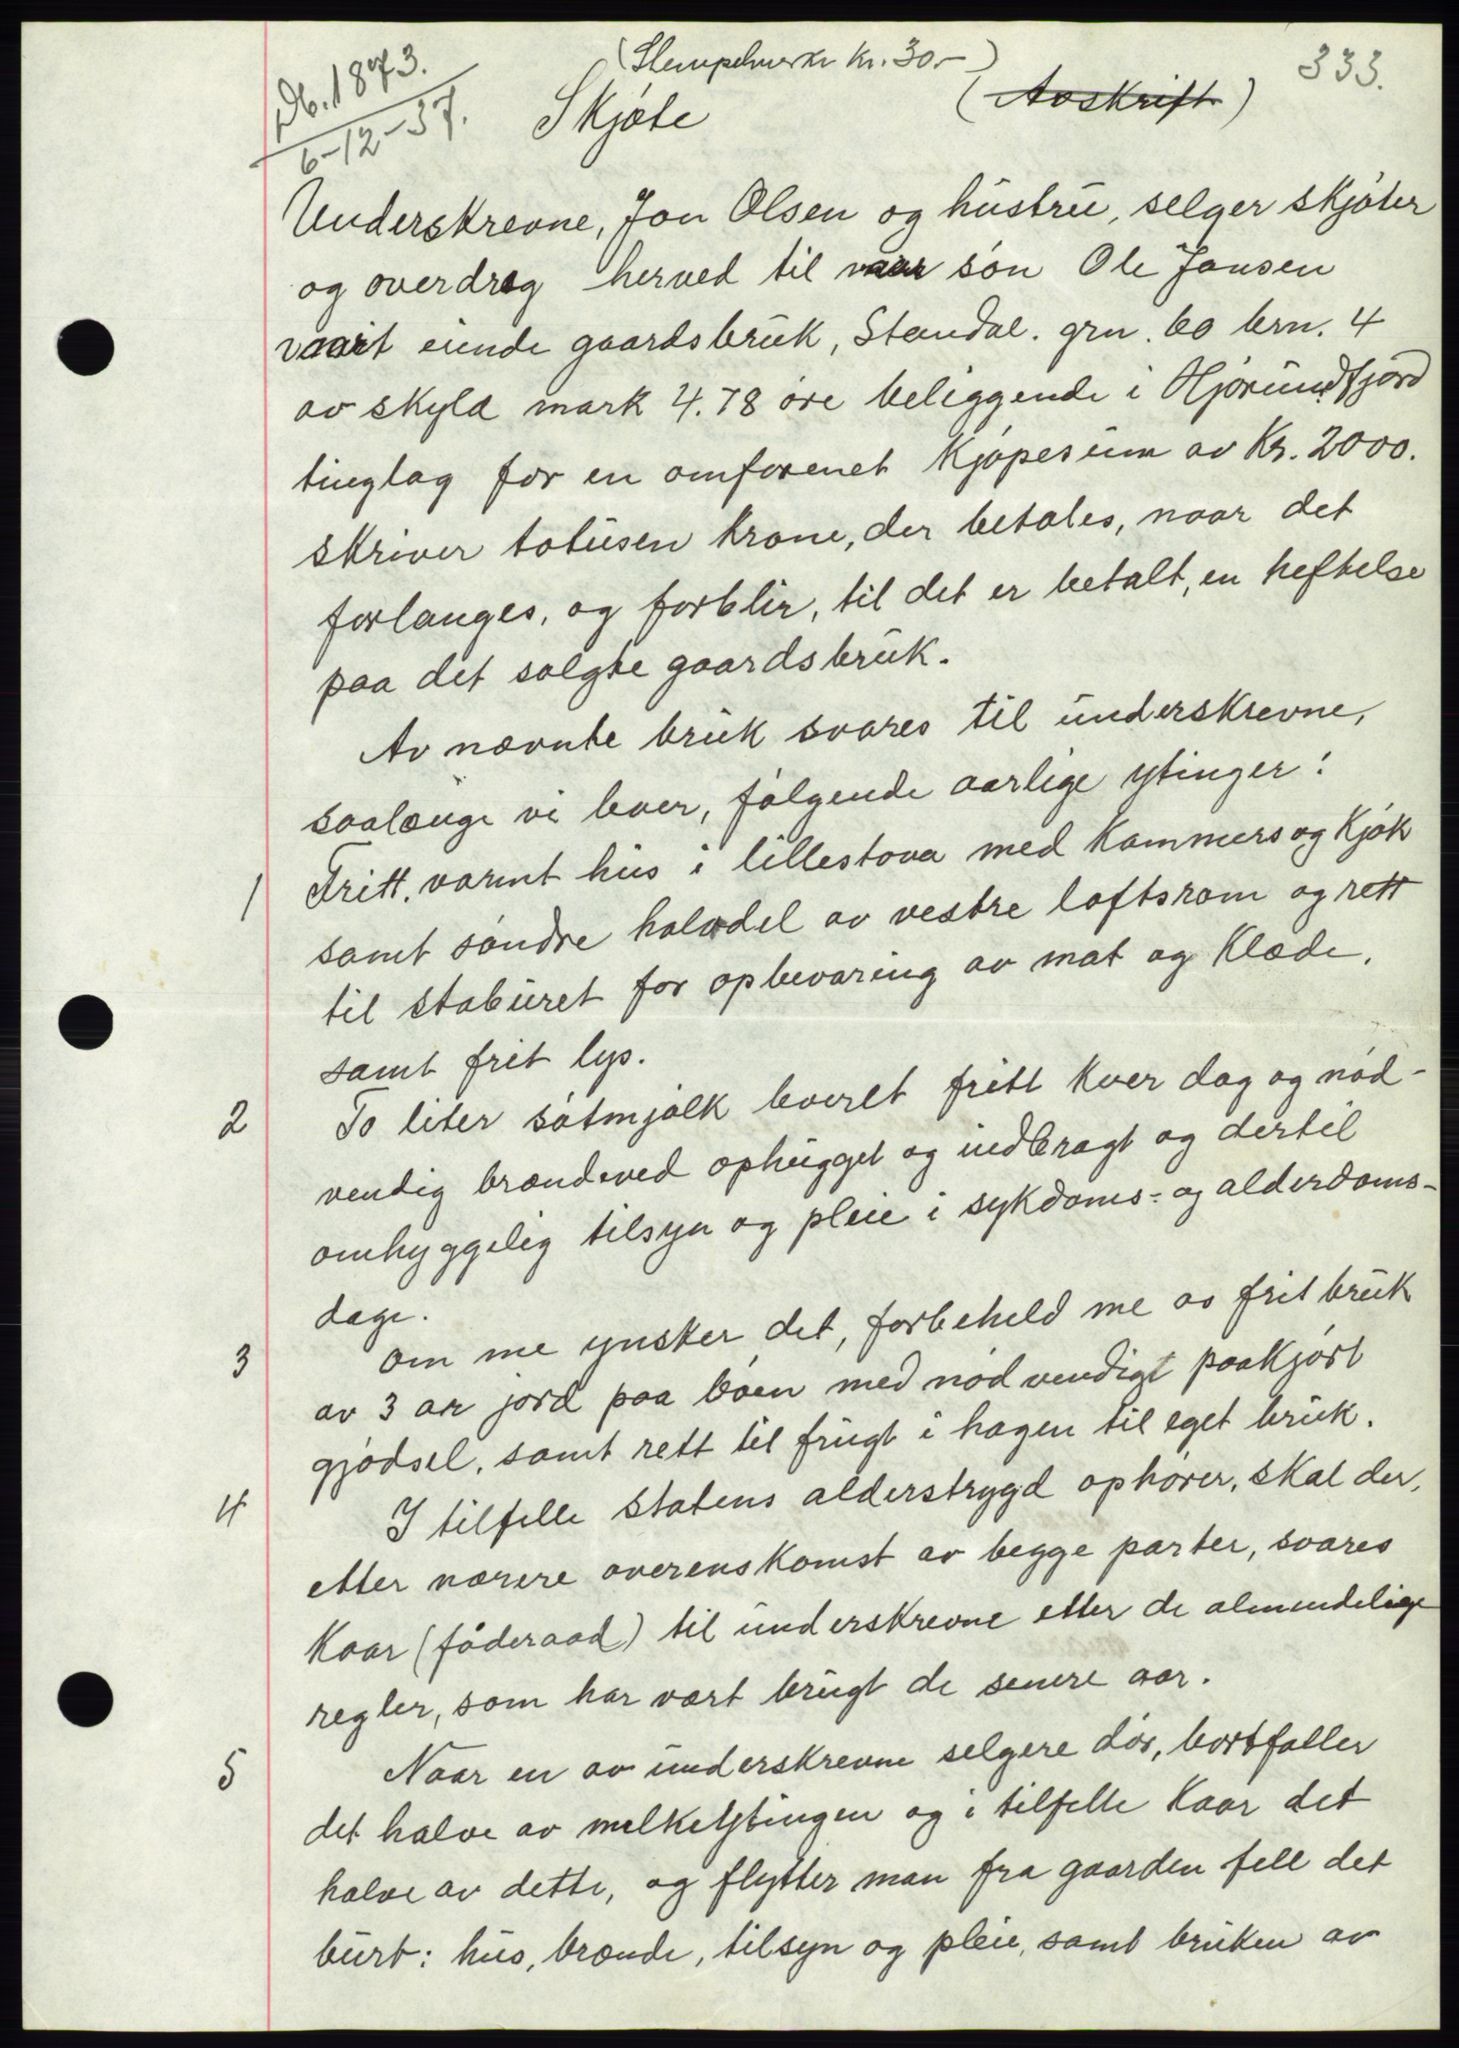 Db. 1873.
6-12-37.
(Stempelmerke kr. 30.-)
333.
Skjøte
(Avskrift)
Underskrevne, Jon Olsen og hustru, selger skjøter
og overdreg herved til vaar søn Ole Jonsen
vaart eiende gaardsbruk, Standal. grn. 60 brn. 4
av skyld mark 4.78 øre beliggende i Hjørundfjord
tinglag for en omforenet kjøpesum av Kr. 2000.
skriver totusen krone, der betales, naar det
forlanges, og forblir, til det er betalt, en heftelse
paa det solgte gaardsbruk.
Av nævnte bruk svares til underskrevne,
saalænge vi lever, følgende aarlige ytinger:
1 Fritt. varmt hus i lillestova med kammers og kjøk
samt søndre halvdel av vestre loftsrom og rett
til staburet for opbevaring av mat og klæde,
samt frit lys.
2 To liter søtmjølk levert fritt kver dag og nød-
vendig brændeved ophugget og indbragt og dertil
omhyggelig tilsyn og pleie i sykdoms- og alderdoms-
dage.
3 Om me ynsker det, forbeheld me os frit bruk
av 3 ar jord paa bøen med nødvendigt paakjørt
gjødsel, samt rett til frugt i hagen til eget bruk.
4 I tilfelle statens alderstrygd ophører, skal der,
etter nærere overenskomst av begge parter, svares
Kaar (føderaad) til underskrevne etter de almindelige
regler, som har vært brugt de senere aar.
5 Naar en av underskrevne selgere dør, bortfaller
det halve av melkeytingen og i tilfelle Kaar det
halve av dette, og flytter man fra gaarden fell det
burt: hus, brænde, tilsyn og pleie, samt bruken av